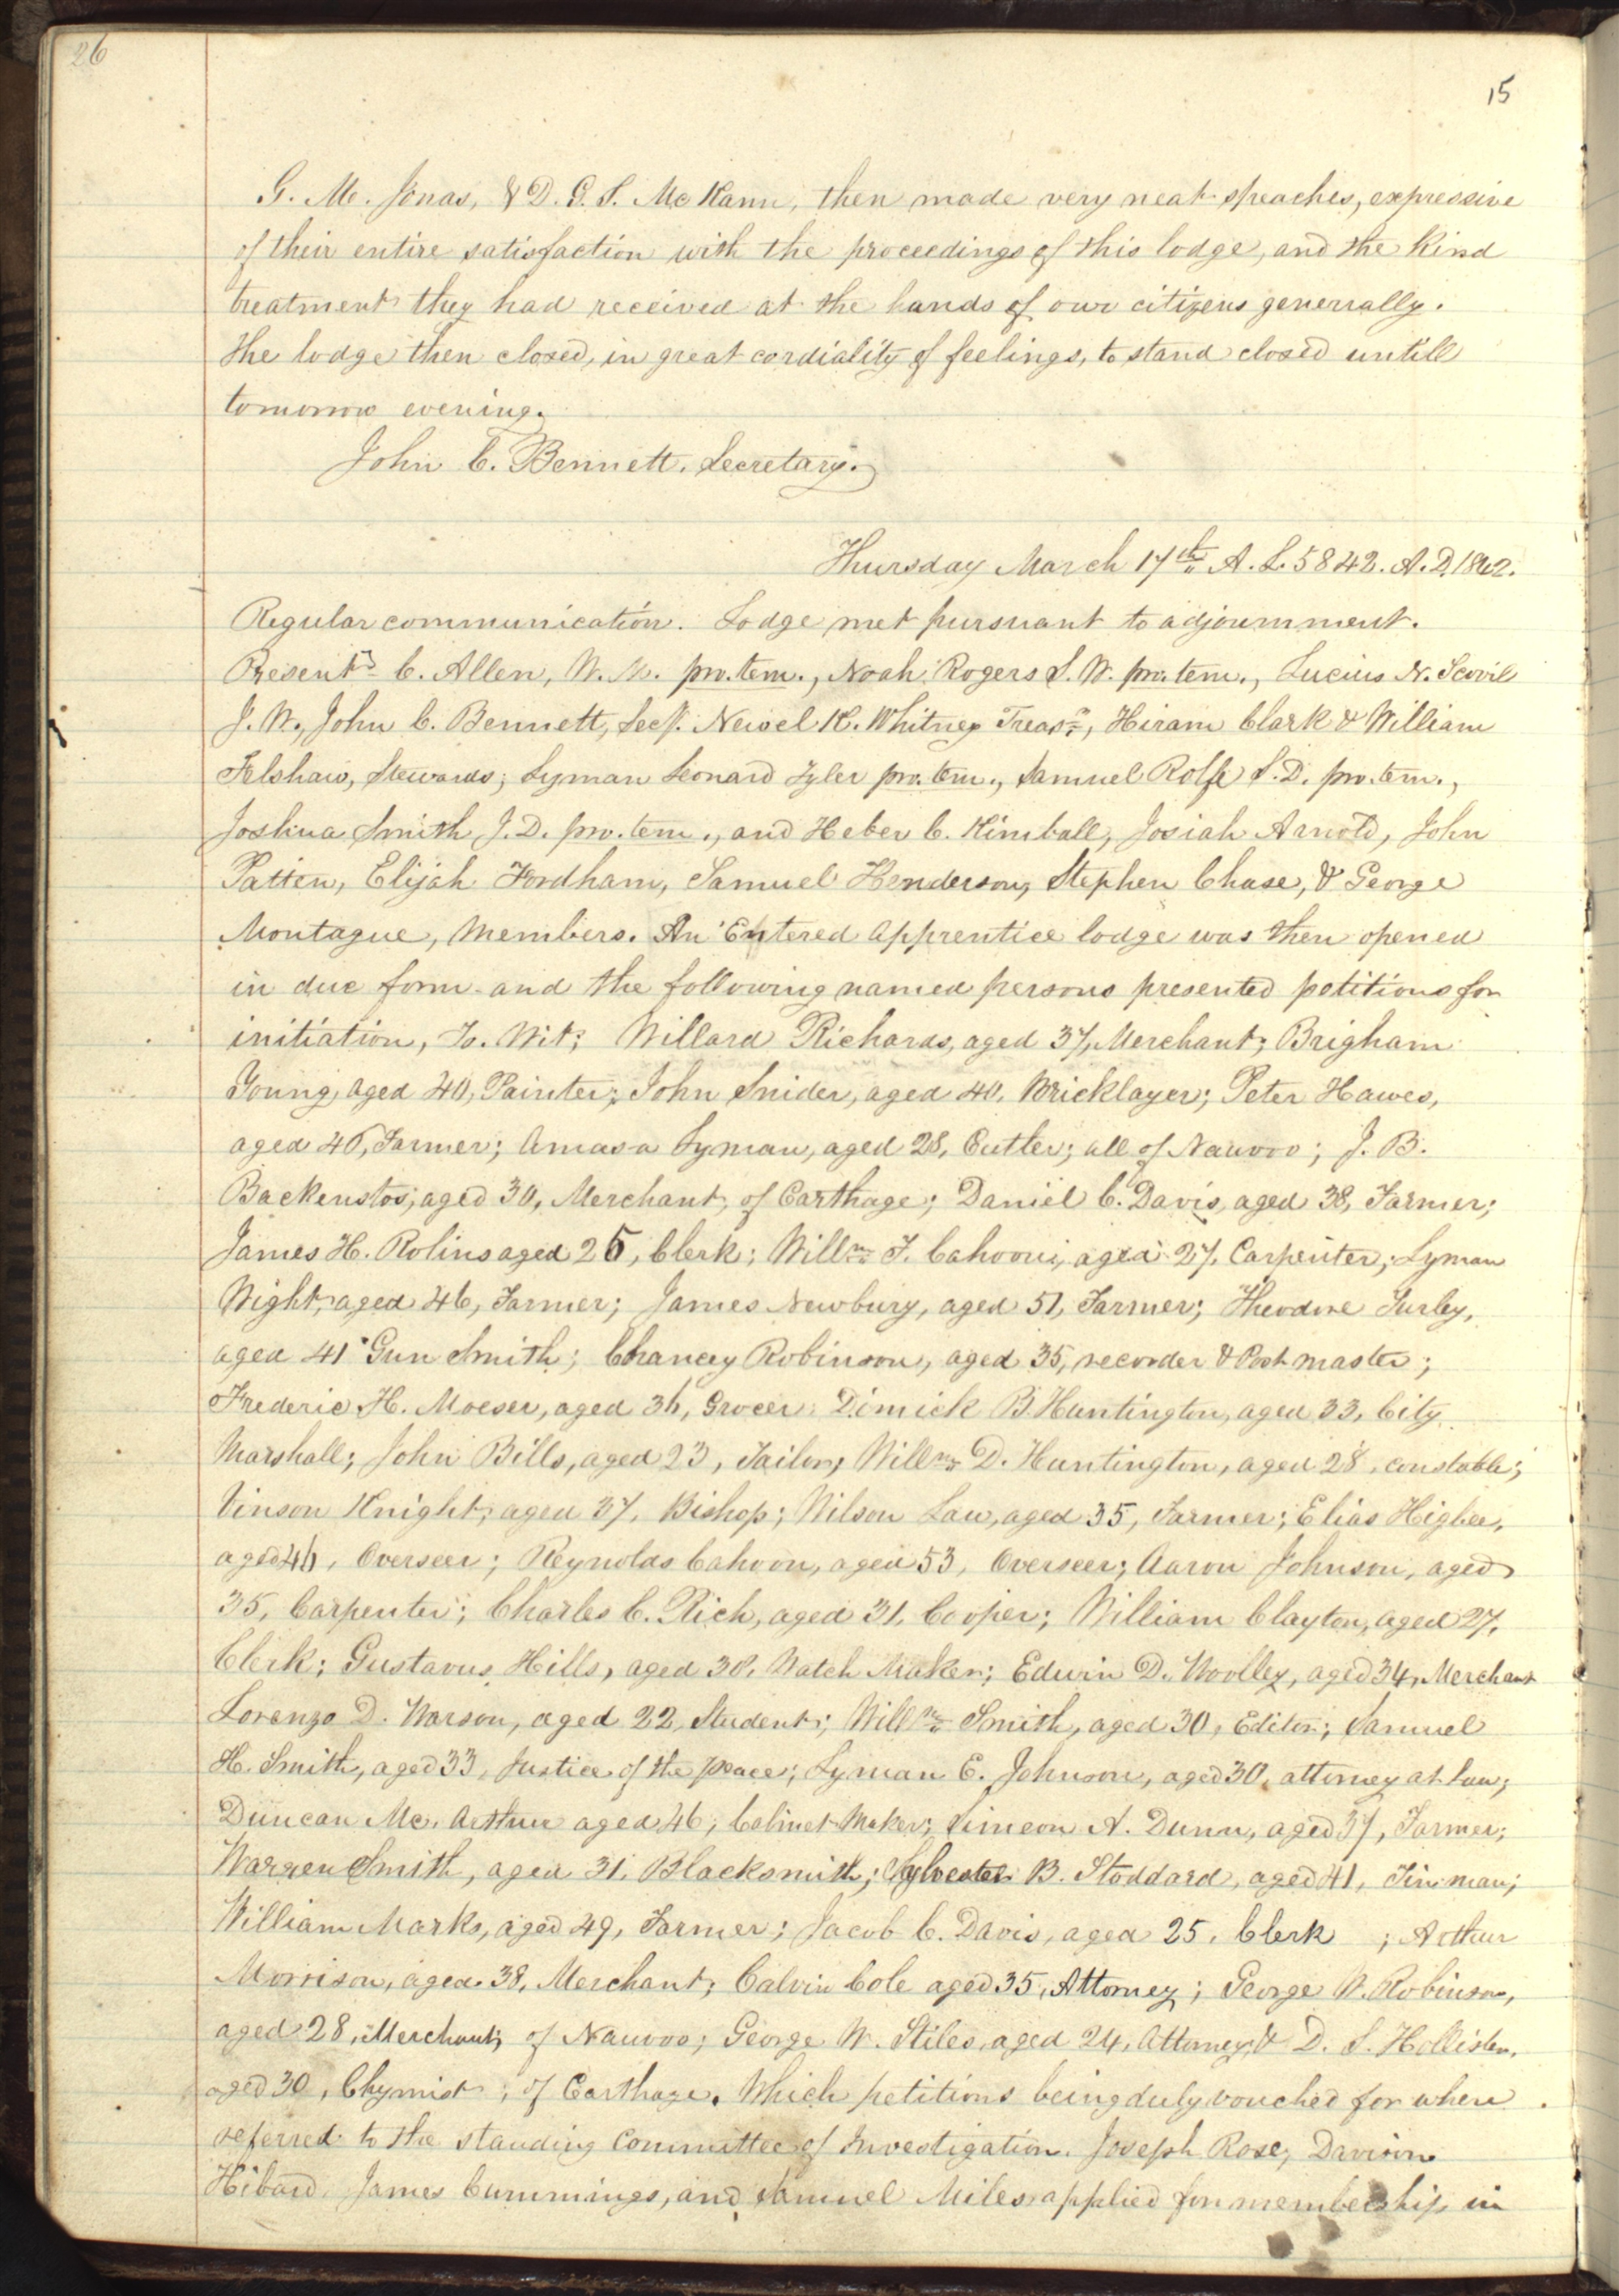 26
15
G. M. Jonas, & D. G. S. McKann, then made very neat speaches, expressive
of their entire satisfaction with the proceedings of this lodge, and the kind
treatment they had received at the hands of our citizens generrally.
The lodge then closed, in great cordiality of feelings, to stand closed untill
tomorrow evening.
John C. Bennett. Secretary.
Thursday March 17th A. L. 5842. A. D. 1842.
Regular communication. Lodge met pursuant to adjournment.
Present C. Allen, W. M. pro. tem., Noah Rogers S. W. pro. tem., Lucius N. Scovil
J. W., John C. Bennett, Secy. Newel K. Whitney Treasr, Hiram Clark & William
Felshaw, Stewards; Lyman Leonard Tyler pro. tem., Samuel Rolfe S. D. pro. tem.,
Joshua Smith J. D. pro. tem., and Heber C. Kimball, Josiah Arnold, John
Patten, Elijah Fordham, Samuel Henderson, Stephen Chase, & George
Montague, Members. An Entered Apprentice lodge was then opened
in due form and the following named persons presented petitions for
initiation, To. Wit; Willard Richards, aged 37, Merchant; Brigham
Young, aged 40, Painter; John Snider, aged 40, Bricklayer; Peter Hawes,
aged 46, Farmer; Amasa Lyman, aged 28, Cutler; all of Nauvoo; J. B.
Backenstos, aged 30, Merchant, of Carthage; Daniel C. Davis, aged 38, Farmer;
James H. Rolins aged 25, Clerk; Willm F. Cahoon, aged 27, Carpenter; Lyman
Wight, aged 46, Farmer; James Newbury, aged 51, Farmer; Theodore Turley,
aged 41 Gun Smith; Chancey Robinson, aged 35, recorder & Post master;
Frederic H. Moeser, aged 36, Grocer; Dimick B. Huntington, aged 33, City
Marshall; John Bills, aged 23, Tailor; Willm D. Huntington, aged 28, constable;
Vinson Knight, aged 37, Bishop; Wilson Law, aged 35, Farmer; Elias Higbee,
aged 46, Overseer; Reynolds Cahoon, aged 53, Overseer; Aaron Johnson, aged
35, Carpenter; Charles C. Rich, aged 31, Cooper; William Clayton, aged 27,
Clerk; Gustavus Hills, aged 38, Watch Maker; Edwin D. Woolley, aged 34, Merchant
Lorenzo D. Warson, aged 22, Student; Willm Smith, aged 30, Editor; Samuel
H. Smith, aged 33, Justice of the peace; Lyman E. Johnson, aged 30, attorney at law;
Duncan Mc. Arthur aged 46, Cabinet Maker; Simeon A. Dunn, aged 37, Farmer;
Warren Smith, aged 31, Blacksmith; Sylvester B. Stoddard, aged 41, Tinman;
William Marks, aged 49, Farmer; Jacob C. Davis, aged 25, Clerk ; Arthur
Morrison, aged 38, Merchant; Calvin Cole aged 35, Attorney; George W. Robinson,
aged 28, Merchant; of Nauvoo; George W. Stiles, aged 24, Attorney, & D. S. Hollister,
aged 30, Chymist; of Carthage. Which petitions being duly vouched for where
referred to the standing Committee of Investigation. Joseph Rose, Davison
Hibard, James Cummings, and Samuel Miles applied for membership in